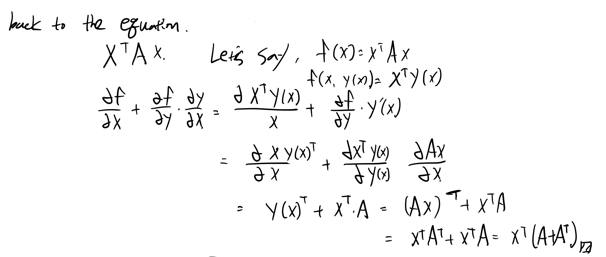 back to the equation.
xᵀAx. Let's say, f(x) = xᵀAx
f(x, y(x)) = xᵀy(x)
∂f/∂x + ∂f/∂y · ∂y/∂x = ∂xᵀy(x)/x + ∂f/∂y · y'(x)
= ∂xy(x)ᵀ/∂x + ∂xᵀy(x)/∂y(x) ∂Ax/∂x
= y(x)ᵀ + xᵀ·A = (Ax)ᵀ + xᵀA
= xᵀAᵀ + xᵀA = xᵀ(A+Aᵀ)